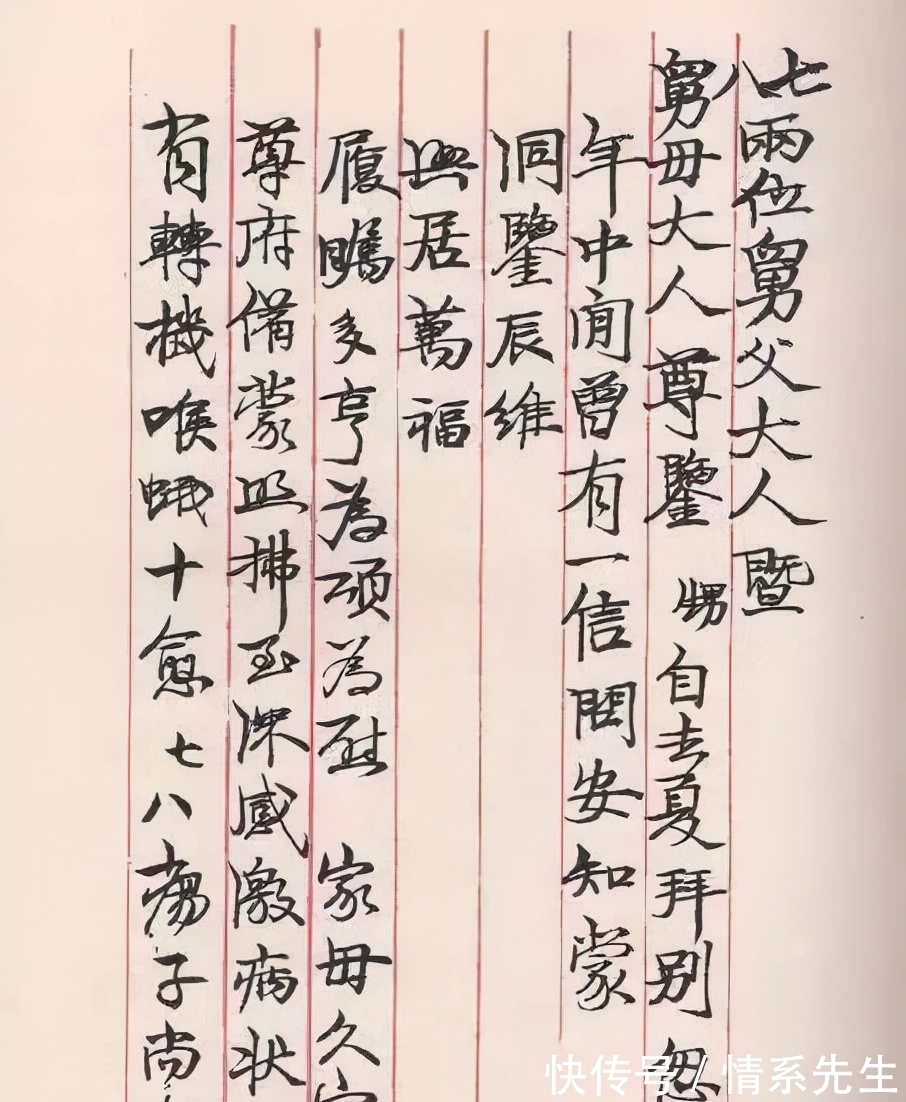 七八兩位舅父大人暨
舅母大人尊鑒 甥自去夏拜别忽
年中間曾有一信問安知蒙
洞鑒辰維
興居萬福
履祉多亨為頌為慰 家母久
尊府備蒙照拂至深感激病状
有轉機喉蛾十愈七八瘍子尚
快传号 / 情系先生